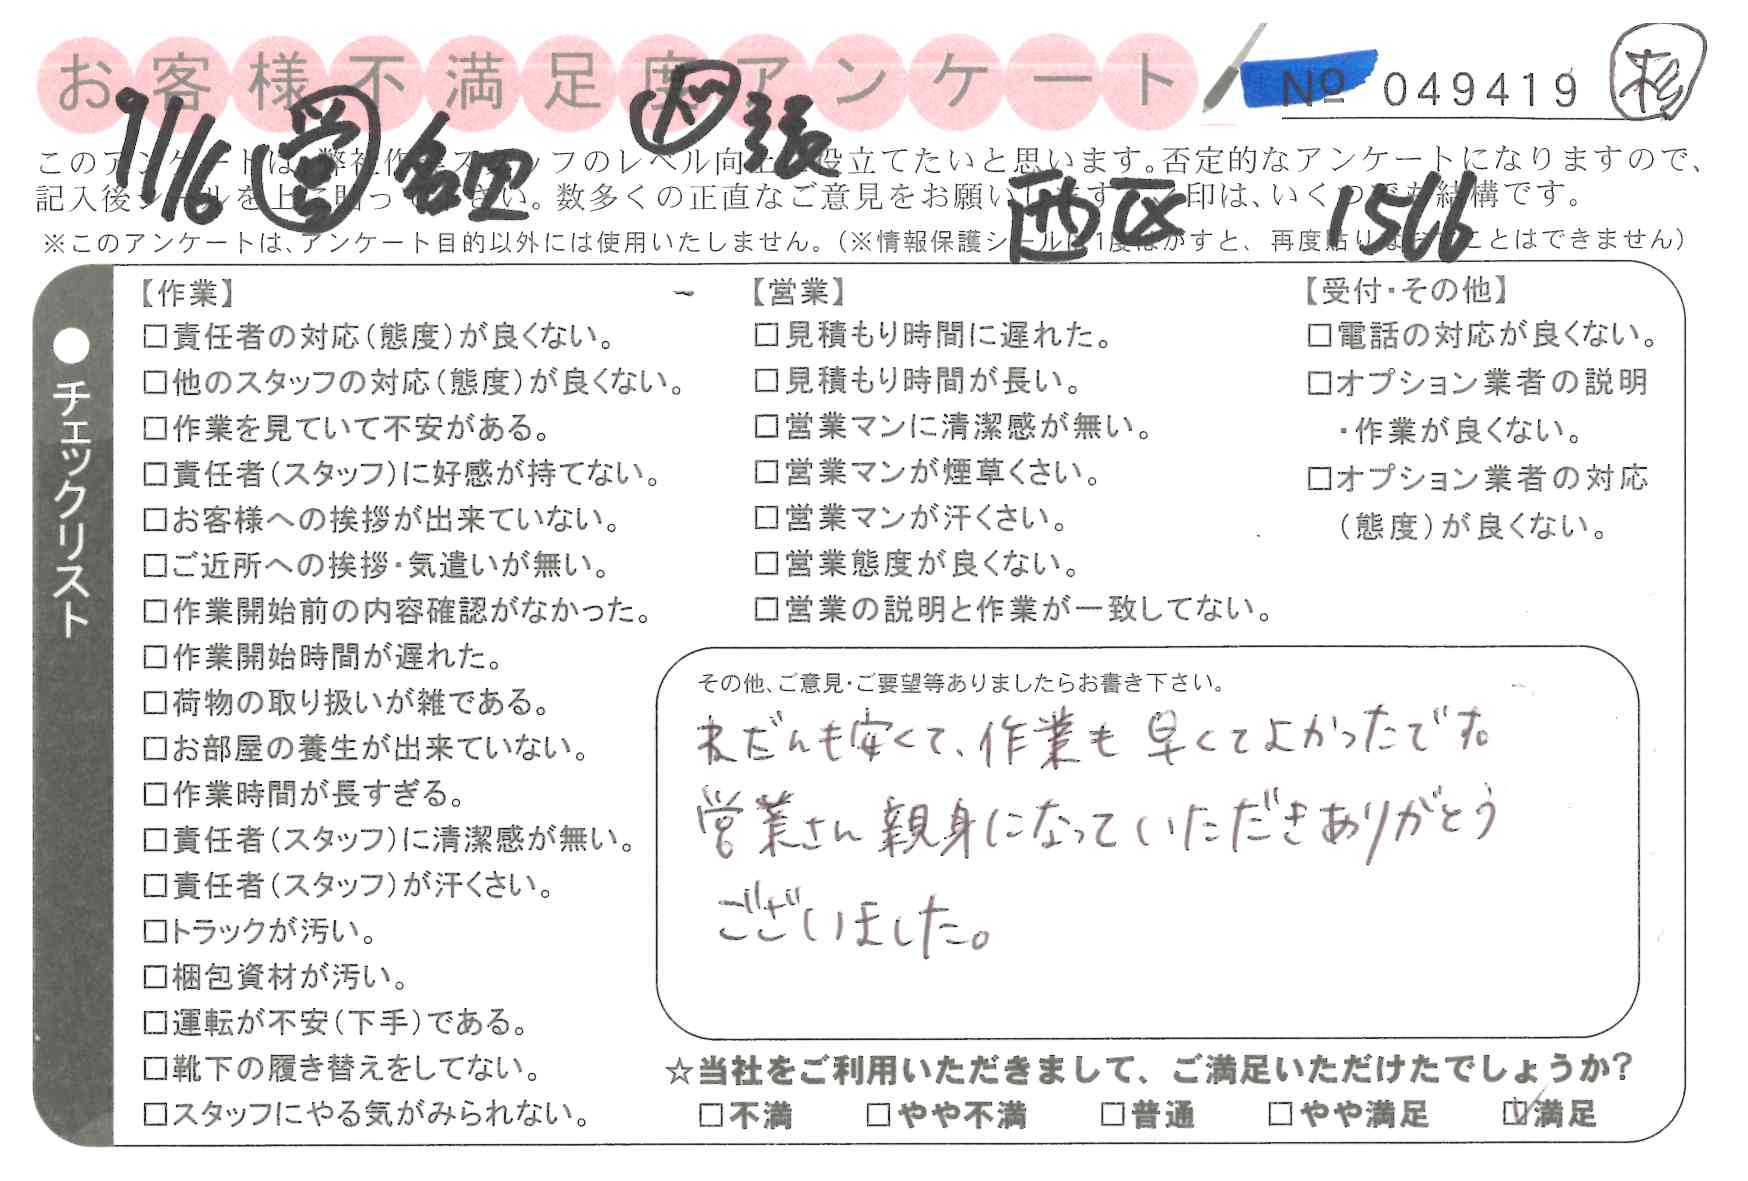 お客様不満足度アンケート
№ 049419 杉
9/16 営 ド 張
このアンケートは、弊社作業スタッフのレベル向上に役立てたいと思います。否定的なアンケートになりますので、
記入後シールを上に貼って下さい。数多くの正直なご意見をお願いします。✓印は、いくつでも結構です。
西区 1566
※このアンケートは、アンケート目的以外には使用いたしません。（※情報保護シールは1度はがすと、再度貼りなおすことはできません）
●チェックリスト
【作業】
□責任者の対応（態度）が良くない。
□他のスタッフの対応（態度）が良くない。
□作業を見ていて不安がある。
□責任者（スタッフ）に好感が持てない。
□お客様への挨拶が出来ていない。
□ご近所への挨拶・気遣いが無い。
□作業開始前の内容確認がなかった。
□作業開始時間が遅れた。
□荷物の取り扱いが雑である。
□お部屋の養生が出来ていない。
□作業時間が長すぎる。
□責任者（スタッフ）に清潔感が無い。
□責任者（スタッフ）が汗くさい。
□トラックが汚い。
□梱包資材が汚い。
□運転が不安（下手）である。
□靴下の履き替えをしてない。
□スタッフにやる気がみられない。
【営業】
□見積もり時間に遅れた。
□見積もり時間が長い。
□営業マンに清潔感が無い。
□営業マンが煙草くさい。
□営業マンが汗くさい。
□営業態度が良くない。
□営業の説明と作業が一致してない。
【受付・その他】
□電話の対応が良くない。
□オプション業者の説明
・作業が良くない。
□オプション業者の対応
（態度）が良くない。
その他、ご意見・ご要望等ありましたらお書き下さい。
ねだんも安くて、作業も早くてよかったです。
営業さん親身になっていただきありがとう
ございました。
☆当社をご利用いただきまして、ご満足いただけたでしょうか？
□不満 □やや不満 □普通 □やや満足 ☑満足